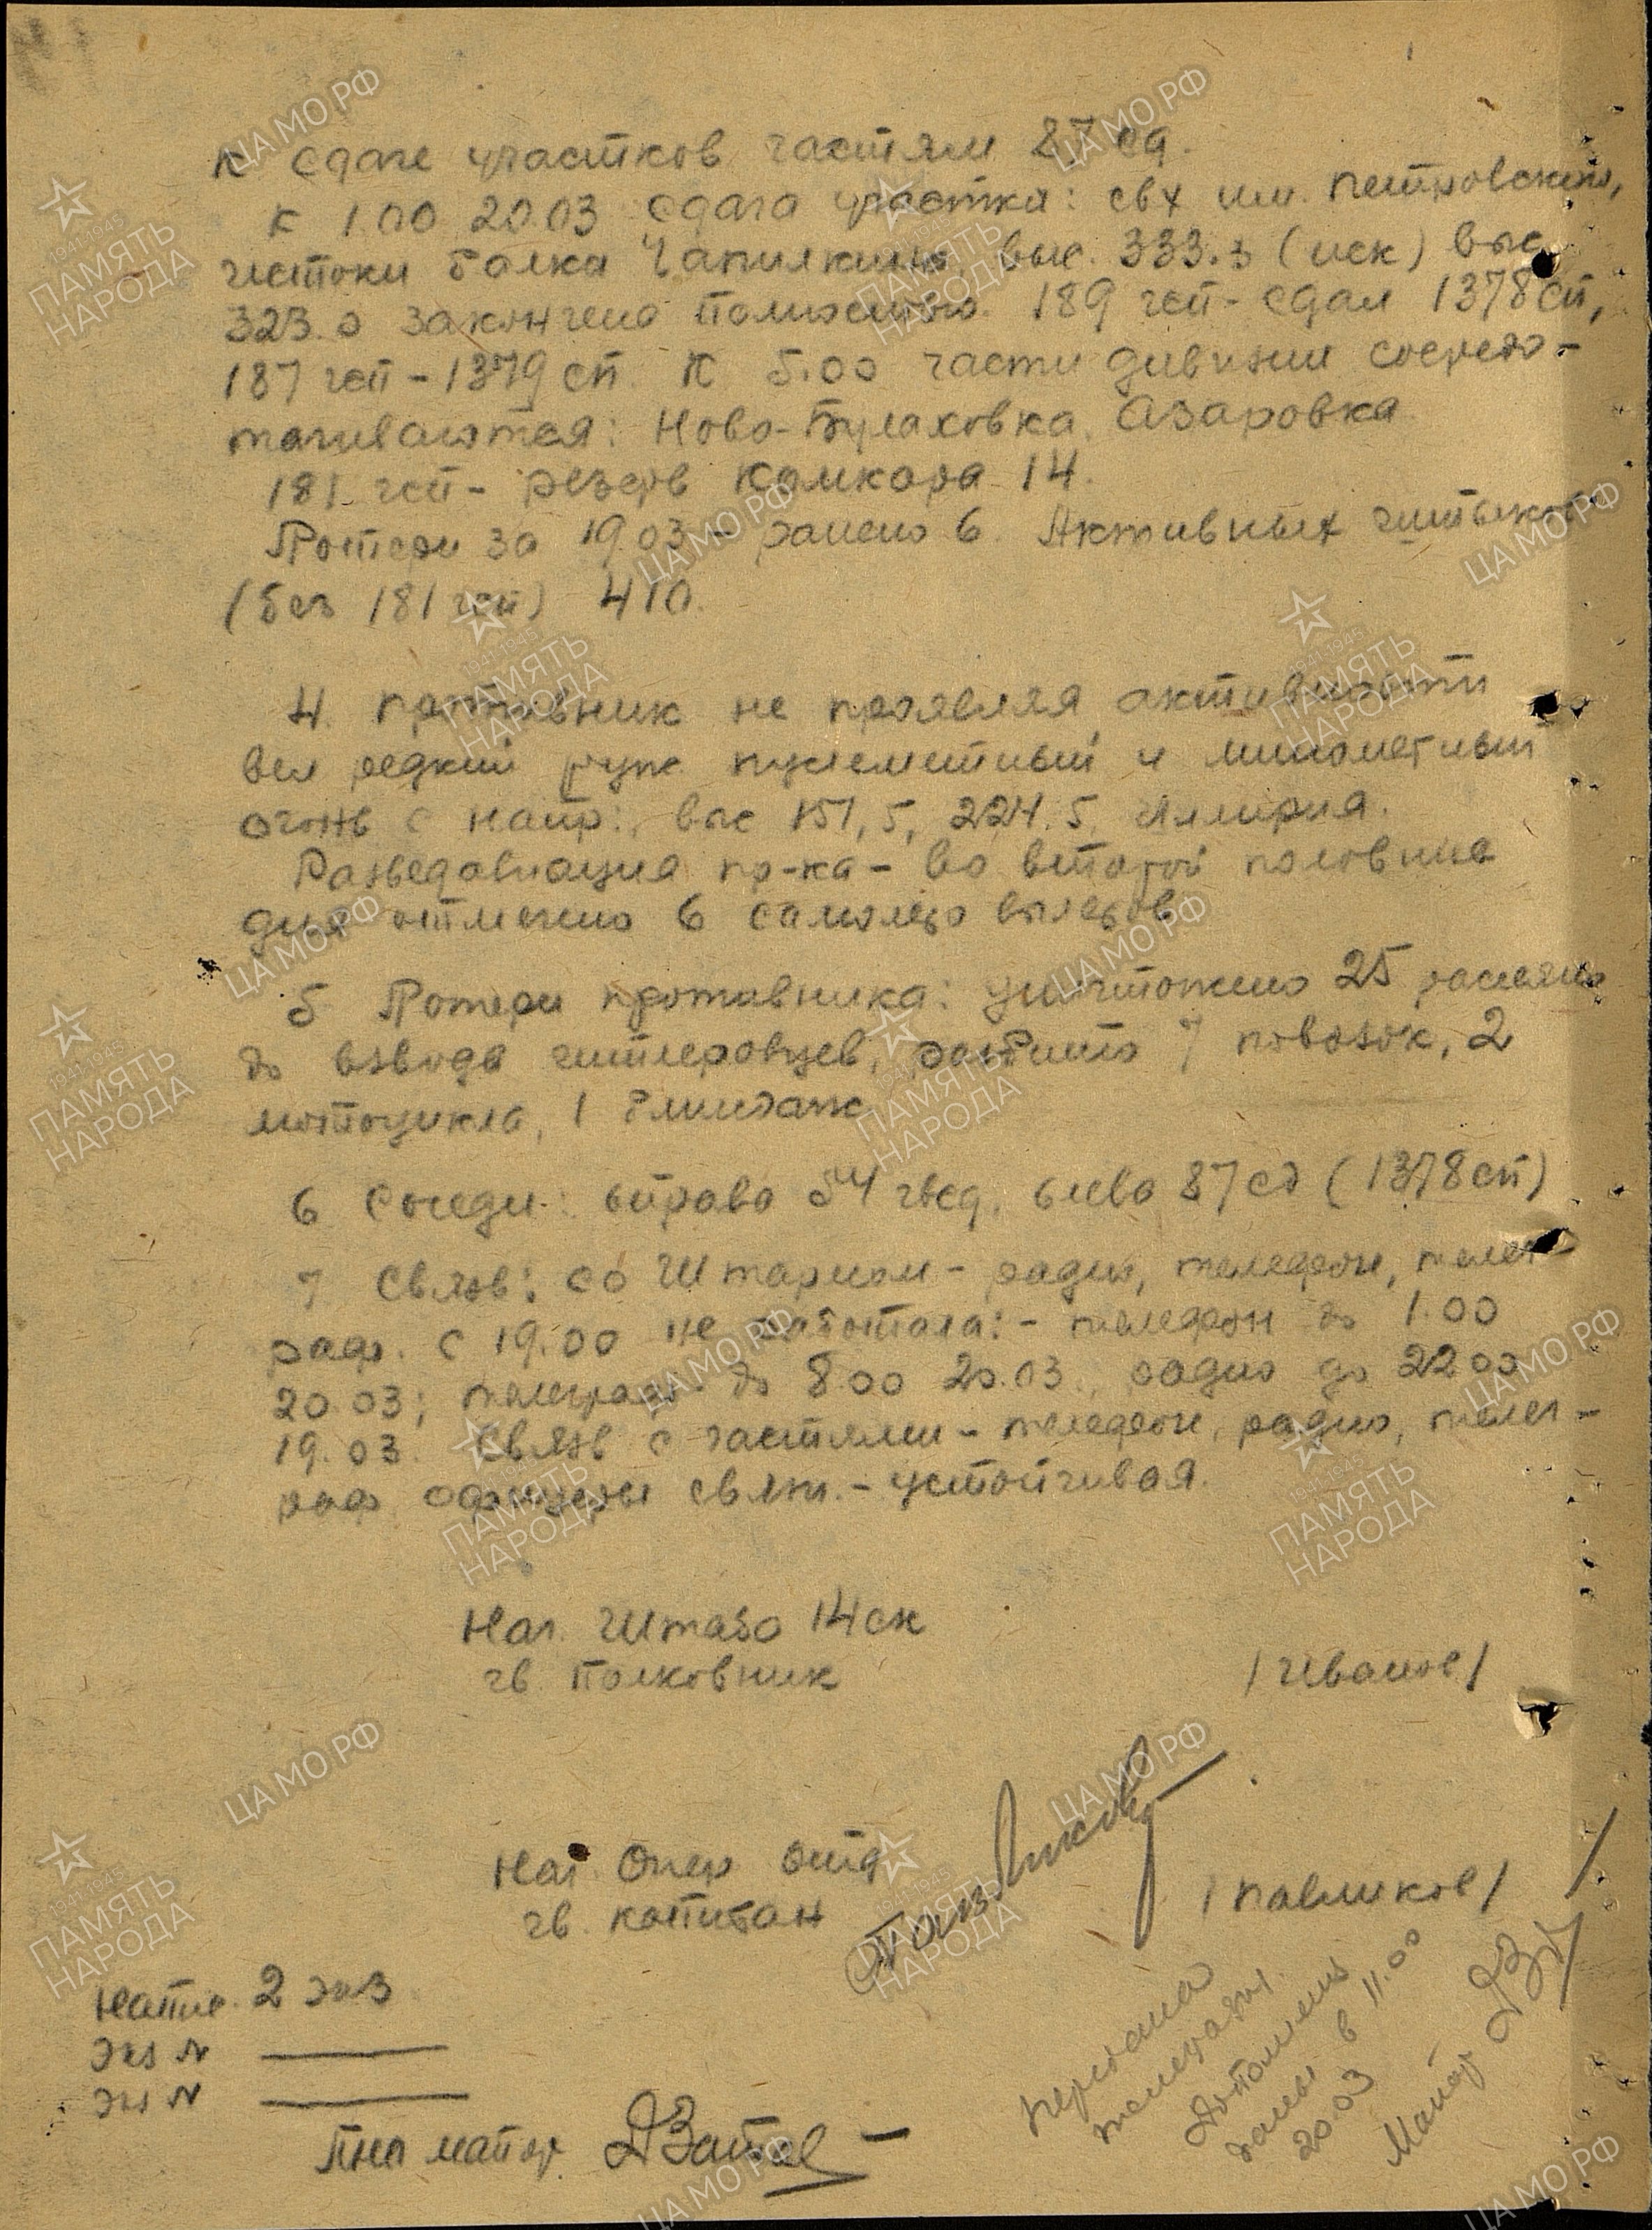 к сдаче участков частям 87 сд.
К 1.00 20.03 сдача участка: свх им. Петровского,
истоки балка Чапилкина, выс. 333.3 (иск) выс
323.0 закончено полностью. 189 гсп - сдал 1378 сп,
187 гсп - 1379 сп. К 5.00 части дивизии сосредо-
тачиваются: Ново-Булаховка, Азаровка
181 гсп - резерв Комкора 14.
Потери за 19.03 - ранено 6. Активных штыков
(без 181 гсп) 410.
4. Противник не проявляя активности
вел редкий руж. пулеметный и минометный
огонь с напр: выс 151,5, 224.5, Иллирия.
Разведавиация пр-ка - во второй половине
дня отмечено 6 самолето вылетов
5 Потери противника: уничтожено 25 рассеяно
до взвода гитлеровцев, разбито 7 повозок, 2
мотоцикла, 1 блиндаж
6 Соседи: вправо 54 гвсд, влево 87 сд (1378 сп)
7 Связь: со Штармом - радио, телефон, телег-
раф. с 19.00 не работала: - телефон до 1.00
20.03; телеграф до 8.00 20.03, радио до 22.00
19.03. Связь с частями - телефон, радио, телег-
раф офицеры связи. - устойчивая.
Нач. Штаба 14 ск
гв. Полковник /Иванов/
Нач Опер Отд
гв. капитан /Павликов/
Напис. 2 экз
Экз №
Экз №
ПНО майор
Передана
телеграфом
Дополнено
данные в 11.00
20.03
Майор